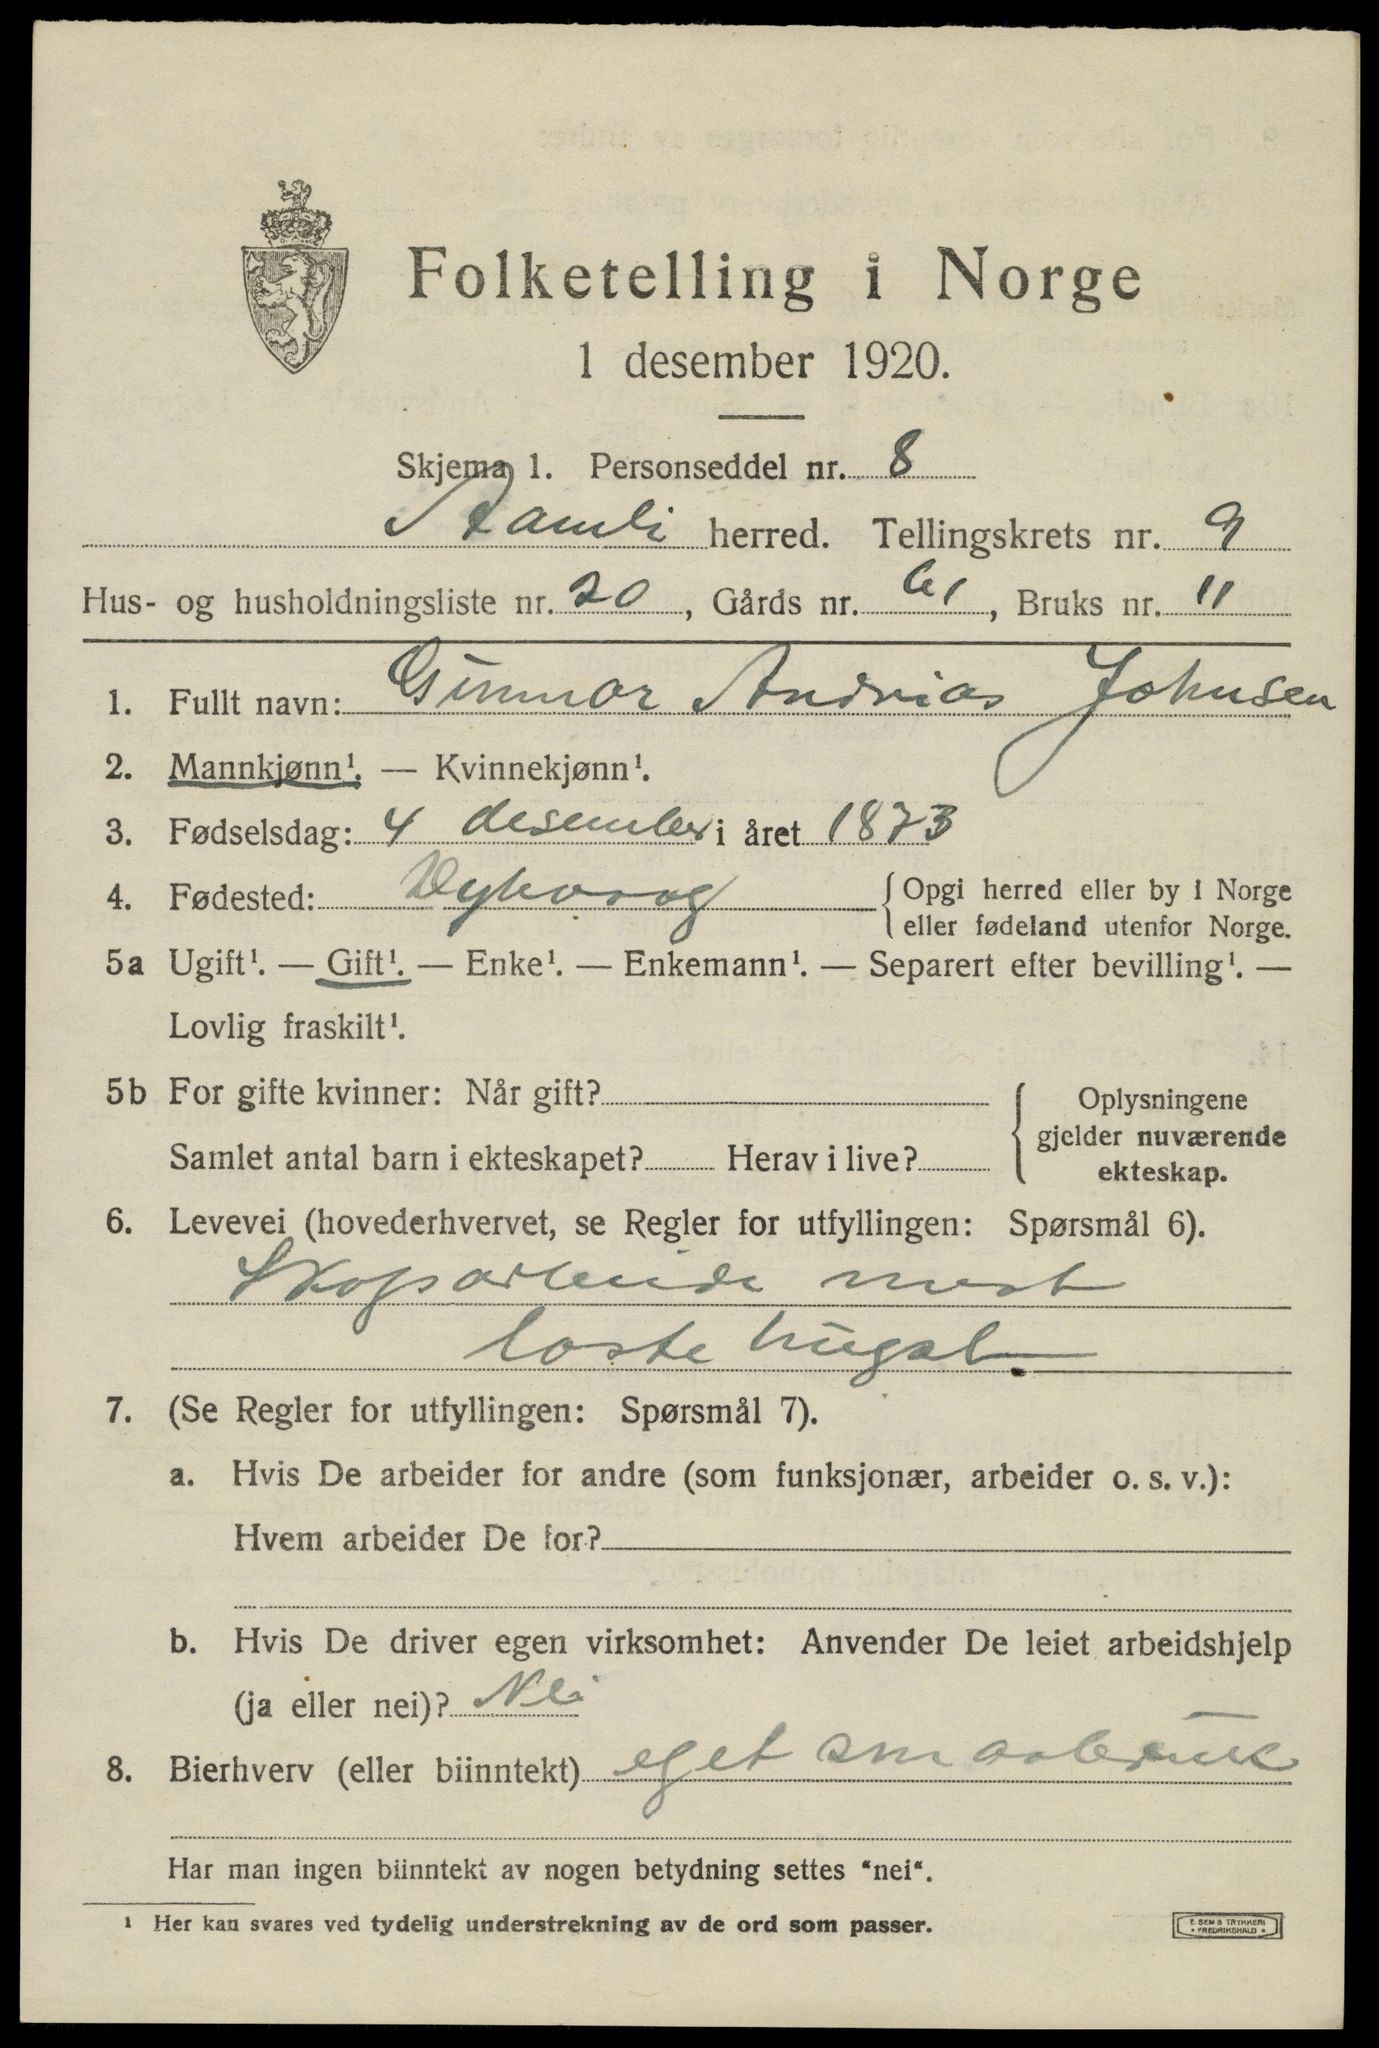 Folketelling i Norge
1 desember 1920.
Skjema 1. Personseddel nr. 8
herred. Tellingskrets nr. 9
Hus- og husholdningsliste nr. 20, Gårds nr. 61, Bruks nr. 11
1. Fullt navn: Gunnar Andrias Johnsen
2. Mannkjønn¹. — Kvinnekjønn¹.
3. Fødselsdag: 4 desember i året 1873
4. Fødested: Dypvaag
{ Opgi herred eller by i Norge
eller fødeland utenfor Norge.
5a Ugift¹. — Gift¹. — Enke¹. — Enkemann¹. — Separert efter bevilling¹. —
Lovlig fraskilt¹.
5b For gifte kvinner: Når gift?
Samlet antal barn i ekteskapet? Herav i live?
{ Oplysningene
gjelder nuværende
ekteskap.
6. Levevei (hovederhvervet, se Regler for utfyllingen: Spørsmål 6).
Skogsarbeide mest
laste hugst
7. (Se Regler for utfyllingen: Spørsmål 7).
a. Hvis De arbeider for andre (som funksjonær, arbeider o. s. v.):
Hvem arbeider De for?
b. Hvis De driver egen virksomhet: Anvender De leiet arbeidshjelp
(ja eller nei)? Nei
8. Bierhverv (eller biinntekt) eget smaabruk
Har man ingen biinntekt av nogen betydning settes "nei".
¹ Her kan svares ved tydelig understrekning av de ord som passer.
E. SEM'S TRYKKERI
• FREDRIKSHALD •